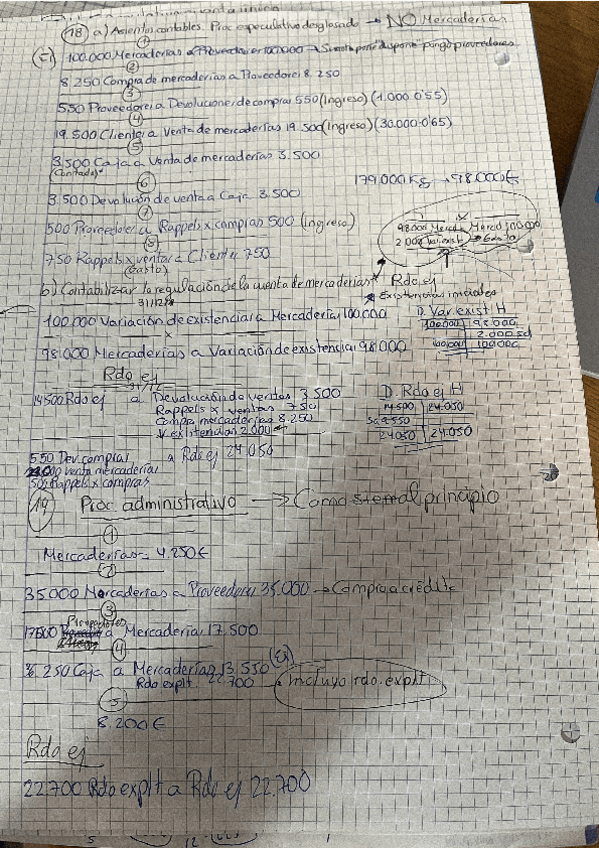 (18) a) Asientos contables. Proc especulativo desglosado → NO Mercaderías
(1)
100.000 Mercaderías a Proveedores 100.000 → Si no te pone "dispone" pongo proveedores
(2)
8.250 Compra de mercaderías a Proveedores 8.250
(3)
550 Proveedores a Devoluciones de compras 550 (Ingreso) (1.000·0'55)
(4)
19.500 Clientes a Venta de mercaderías 19.500 (Ingreso) (30.000·0'65)
(5)
3.500 Caja a Venta de mercaderías 3.500
(Contado)
(6)
179.000 Kg → 98.000€
3.500 Devolución de venta a Caja 3.500
(7)
500 Proveedores a Rappels x compras 500 (Ingreso)
98.000 Mercad Mercad 100.000
2.000 Var. exist → Gasto
(8)
750 Rappels x ventas a Clientes 750
(Gasto)
b) Contabilizar la regulación de la cuenta de mercaderías * Rdo ej
31/12
* Existencias iniciales
100.000 Variación de existencias a Mercaderías 100.000
D. Var exist H
100.000 98.000
2.000 sd
100.000 100.000
x
98.000 Mercaderías a Variación de existencias 98.000
Rdo ej
31/12
14500 Rdo ej a Devolución de ventas 3.500
Rappels x ventas 750
Compra mercaderías 8.250
V. existencias 2.000
D. Rdo ej H
14.500 24.050
9.550
24.050 24.050
550 Dev. compras a Rdo ej 24.050
venta mercaderías
500 Rappels x compras
(19) Proc. administrativo → Como siempre al principio
(1)
Mercaderías = 4.250€
(2)
35.000 Mercaderías a Proveedores 35.000 → Compra a crédito
(3)
Proveedores
17.500 a Mercaderías 17.500
(4)
36.250 Caja a Mercaderías 13.550 (Ex)
Rdo explt. 22.700
Incluyo rdo. explt
(5)
8.200€
Rdo ej
22.700 Rdo explt a Rdo ej 22.700